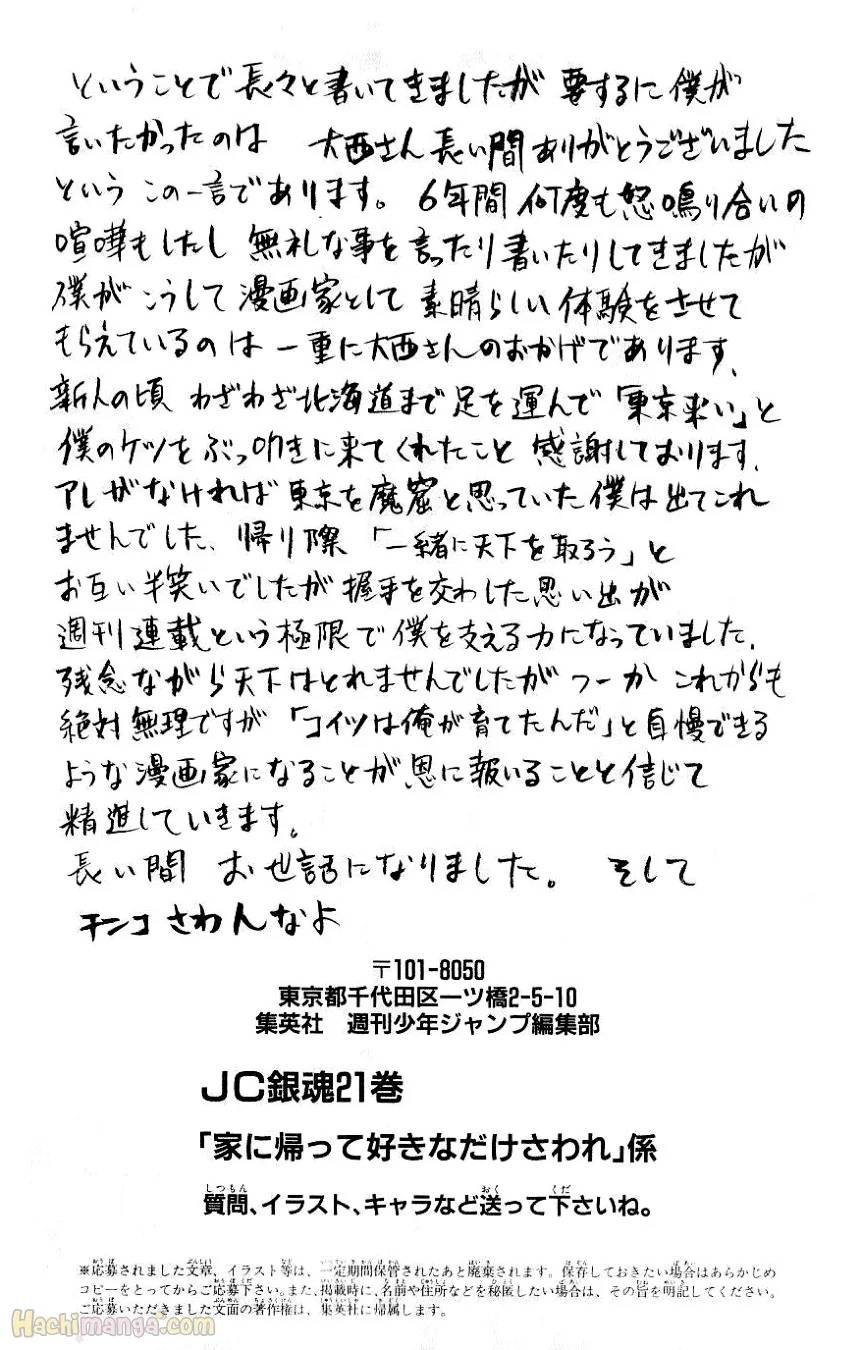 ということで長々と書いてきましたが 要するに僕が
言いたかったのは 大西さん長い間ありがとうございました
という この一言であります。6年間何度も怒鳴り合いの
喧嘩もしたし 無礼な事を言ったり書いたりしてきましたが
僕がこうして漫画家として素晴らしい体験をさせて
もらえているのは一重に大西さんのおかげであります。
新人の頃 わざわざ北海道まで足を運んで「東京来い」と
僕のケツをぶっ叩きに来てくれたこと 感謝しております。
アレがなければ東京を魔窟と思っていた僕は出てこれ
ませんでした。帰り際「一緒に天下を取ろう」と
お互い半笑いでしたが握手を交わした思い出が
週刊連載という極限で僕を支える力になっていました。
残念ながら天下はとれませんでしたが つーか これからも
絶対無理ですが「コイツは俺が育てたんだ」と自慢できる
ような漫画家になることが恩に報いることと信じて
精進していきます。
長い間 お世話になりました。 そして
チンコさわんなよ
〒101-8050
東京都千代田区一ツ橋2-5-10
集英社 週刊少年ジャンプ編集部
JC銀魂21巻
「家に帰って好きなだけさわれ」係
質問、イラスト、キャラなど送って下さいね。
※応募されました文章、イラスト等は、一定期間保管されたあと廃棄されます。保存しておきたい場合はあらかじめ
コピーをとってからご応募下さい。また、掲載時に、名前や住所などを秘匿したい場合は、その旨を明記してください。
ご応募いただきました文面の著作権は、集英社に帰属します。
Hachimanga.com